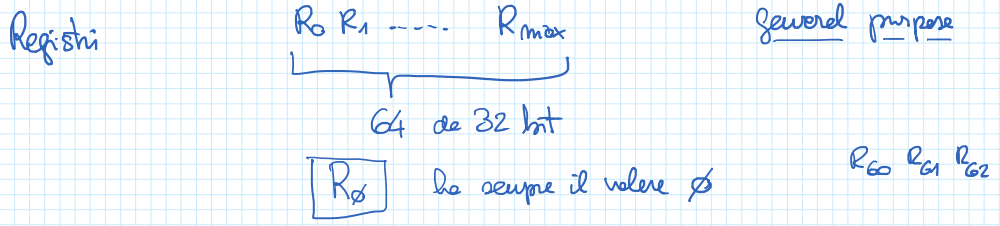 Registri R0 R1 ...... Rmax General purpose
64 da 32 bit
R∅ ha sempre il valore ∅ R60 R61 R62